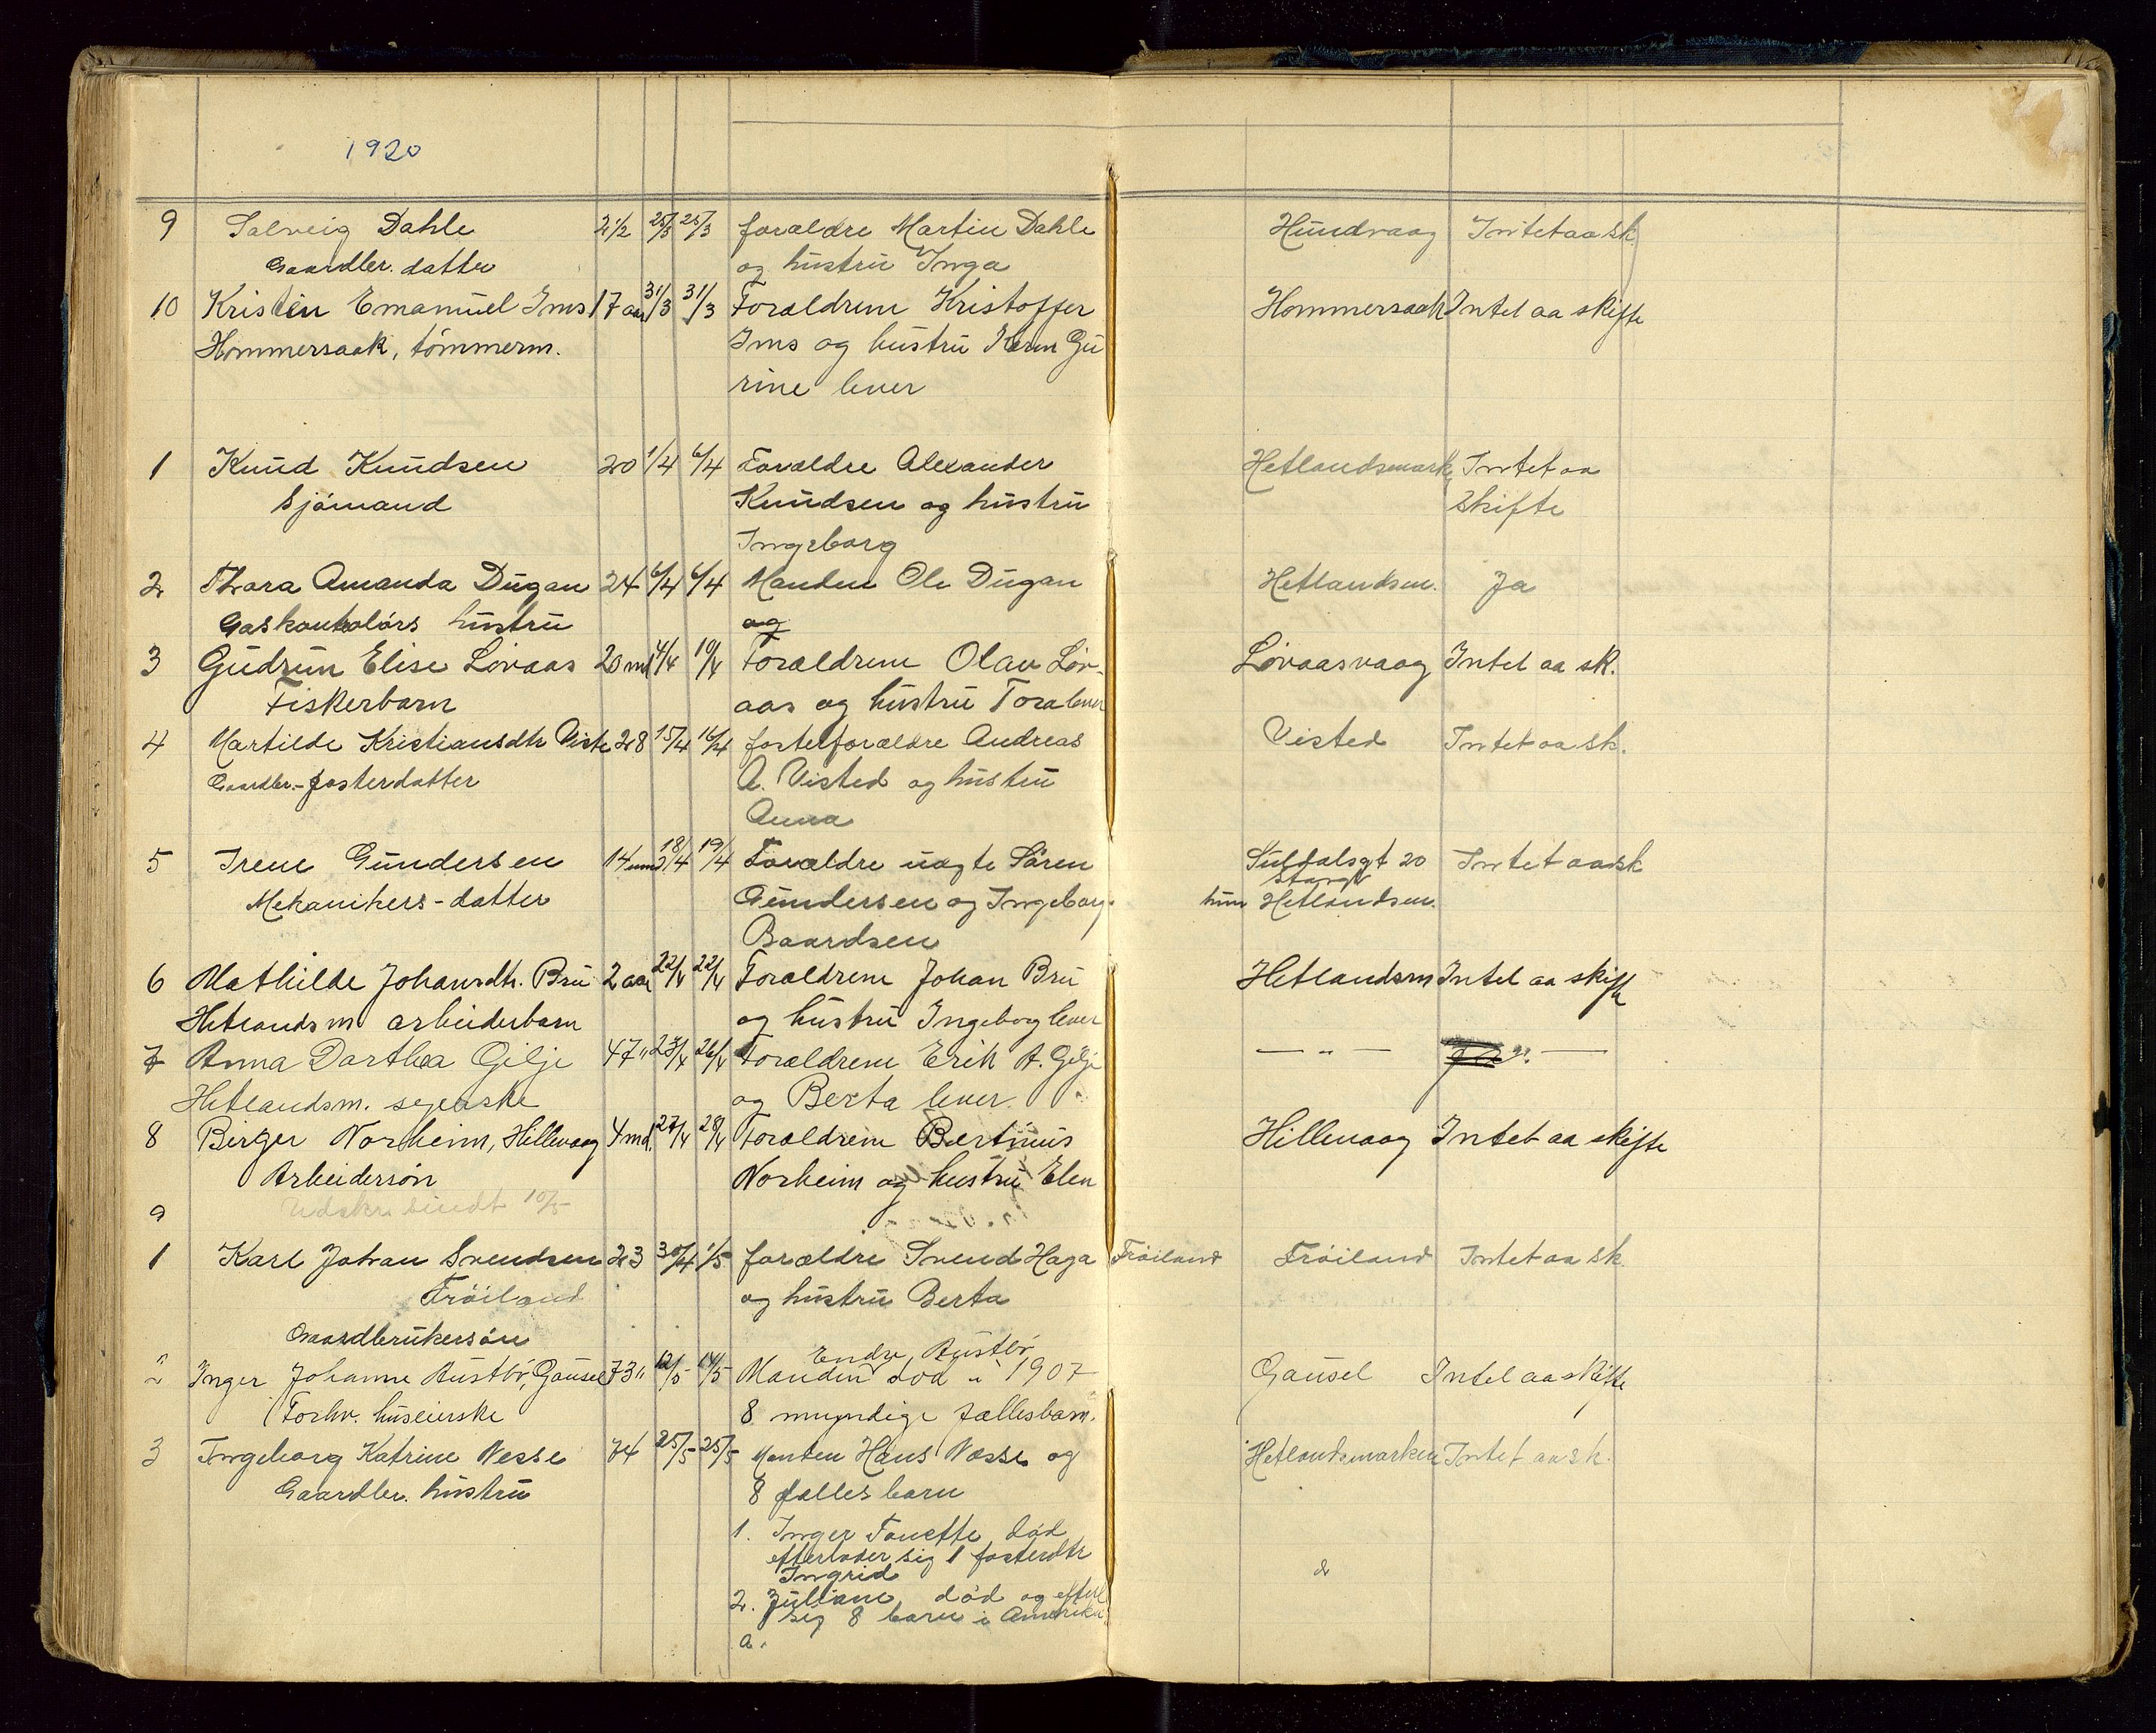 1920
9 Solveig Dahle 2 1/2 25/3 25/3 forældre Martin Dahle Hundvaag Intet aa sk.
Gaardbr. datter og hustru Inga
10 Kristen Emanuel Ims 17 aar 31/3 31/3 Forældrene Kristoffer Hommersaak Intet aa skifte
Hommersaak, tømmerm. Ims og hustru Karen Gu
rine lever
1 Knud Knudsen 20 1/4 6/4 Forældre Alexander Hetlandsmark Intet aa
Sjømand Knudsen og hustru Skifte
Ingeborg
2 Thora Amanda Dugan 24 6/4 6/4 Manden Ole Dugan Hetlandsm. Ja
Gaskontolørs hustru og
3 Gudrun Elise Løvaas 20 md 4/4 10/4 Forældrene Olav Løv- Løvaasvaag Intet aa sk.
Fiskerbarn aas og hustru Tora lever
4 Martilde Kristiansdtr Viste 28 15/4 16/4 fosterforældre Andreas Visted Intet aa sk.
Gaardbr.-fosterdatter A. Visted og hustru
Anna
5 Irene Gundersen 14 18/4 19/4 Forældre uægte Søren Suldalsgt 20 Intet aa sk
Stavgr
Mekanikers-datter Gundersen og Ingeborg hun Hetlandsm.
Baardsen
6 Mathilde Johansdtr. Bru 2 aar 22/4 22/4 Forældrene Johan Bru Hetlandsm Intet aa skifte
Hetlandsm arbeiderbarn og hustru Ingeborg lever
7 Anna Dorthea Gilje 47 " 23/4 26/4 Forældrene Erik A. Gilje — " — " —
Hetlandsm. syerske og Berta lever.
8 Birger Norheim, Hillevaag 4 md. 27/4 28/4 Forældrene Bertinus Hillevaag Intet aa skifte
Arbeidersøn Norheim og hustru Elen
9 Udskr. sendt 10/5
1 Karl Johan Svendsen 23 30/4 1/5 forældre Svend Haga Frøiland Frøiland Intet aa sk.
Frøiland og hustru Berta
Gaardbrukersøn
Endre Austbø
2 Inger Johanne Austbø, Gausel 73 " 12/5 14/5 Manden død i 1907 Gausel Intet aa skifte
Forhv. huseierske 8 myndige fællesbarn.
3 Ingeborg Katrine Nesse 74 25/5 25/5 Manden Hans Næsse og Hetlandsmarken Intet aa sk.
Gaardbr. hustru 8 fælles barn
1. Inger død
efterlader sig 1 fosterdtr
Ingrid
2. Juliane død og efterl
sig 8 barn i Amerika
a.